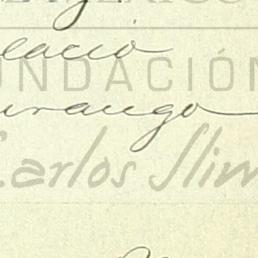 lacio
FUNDACIÓN
urango
Carlos Slim